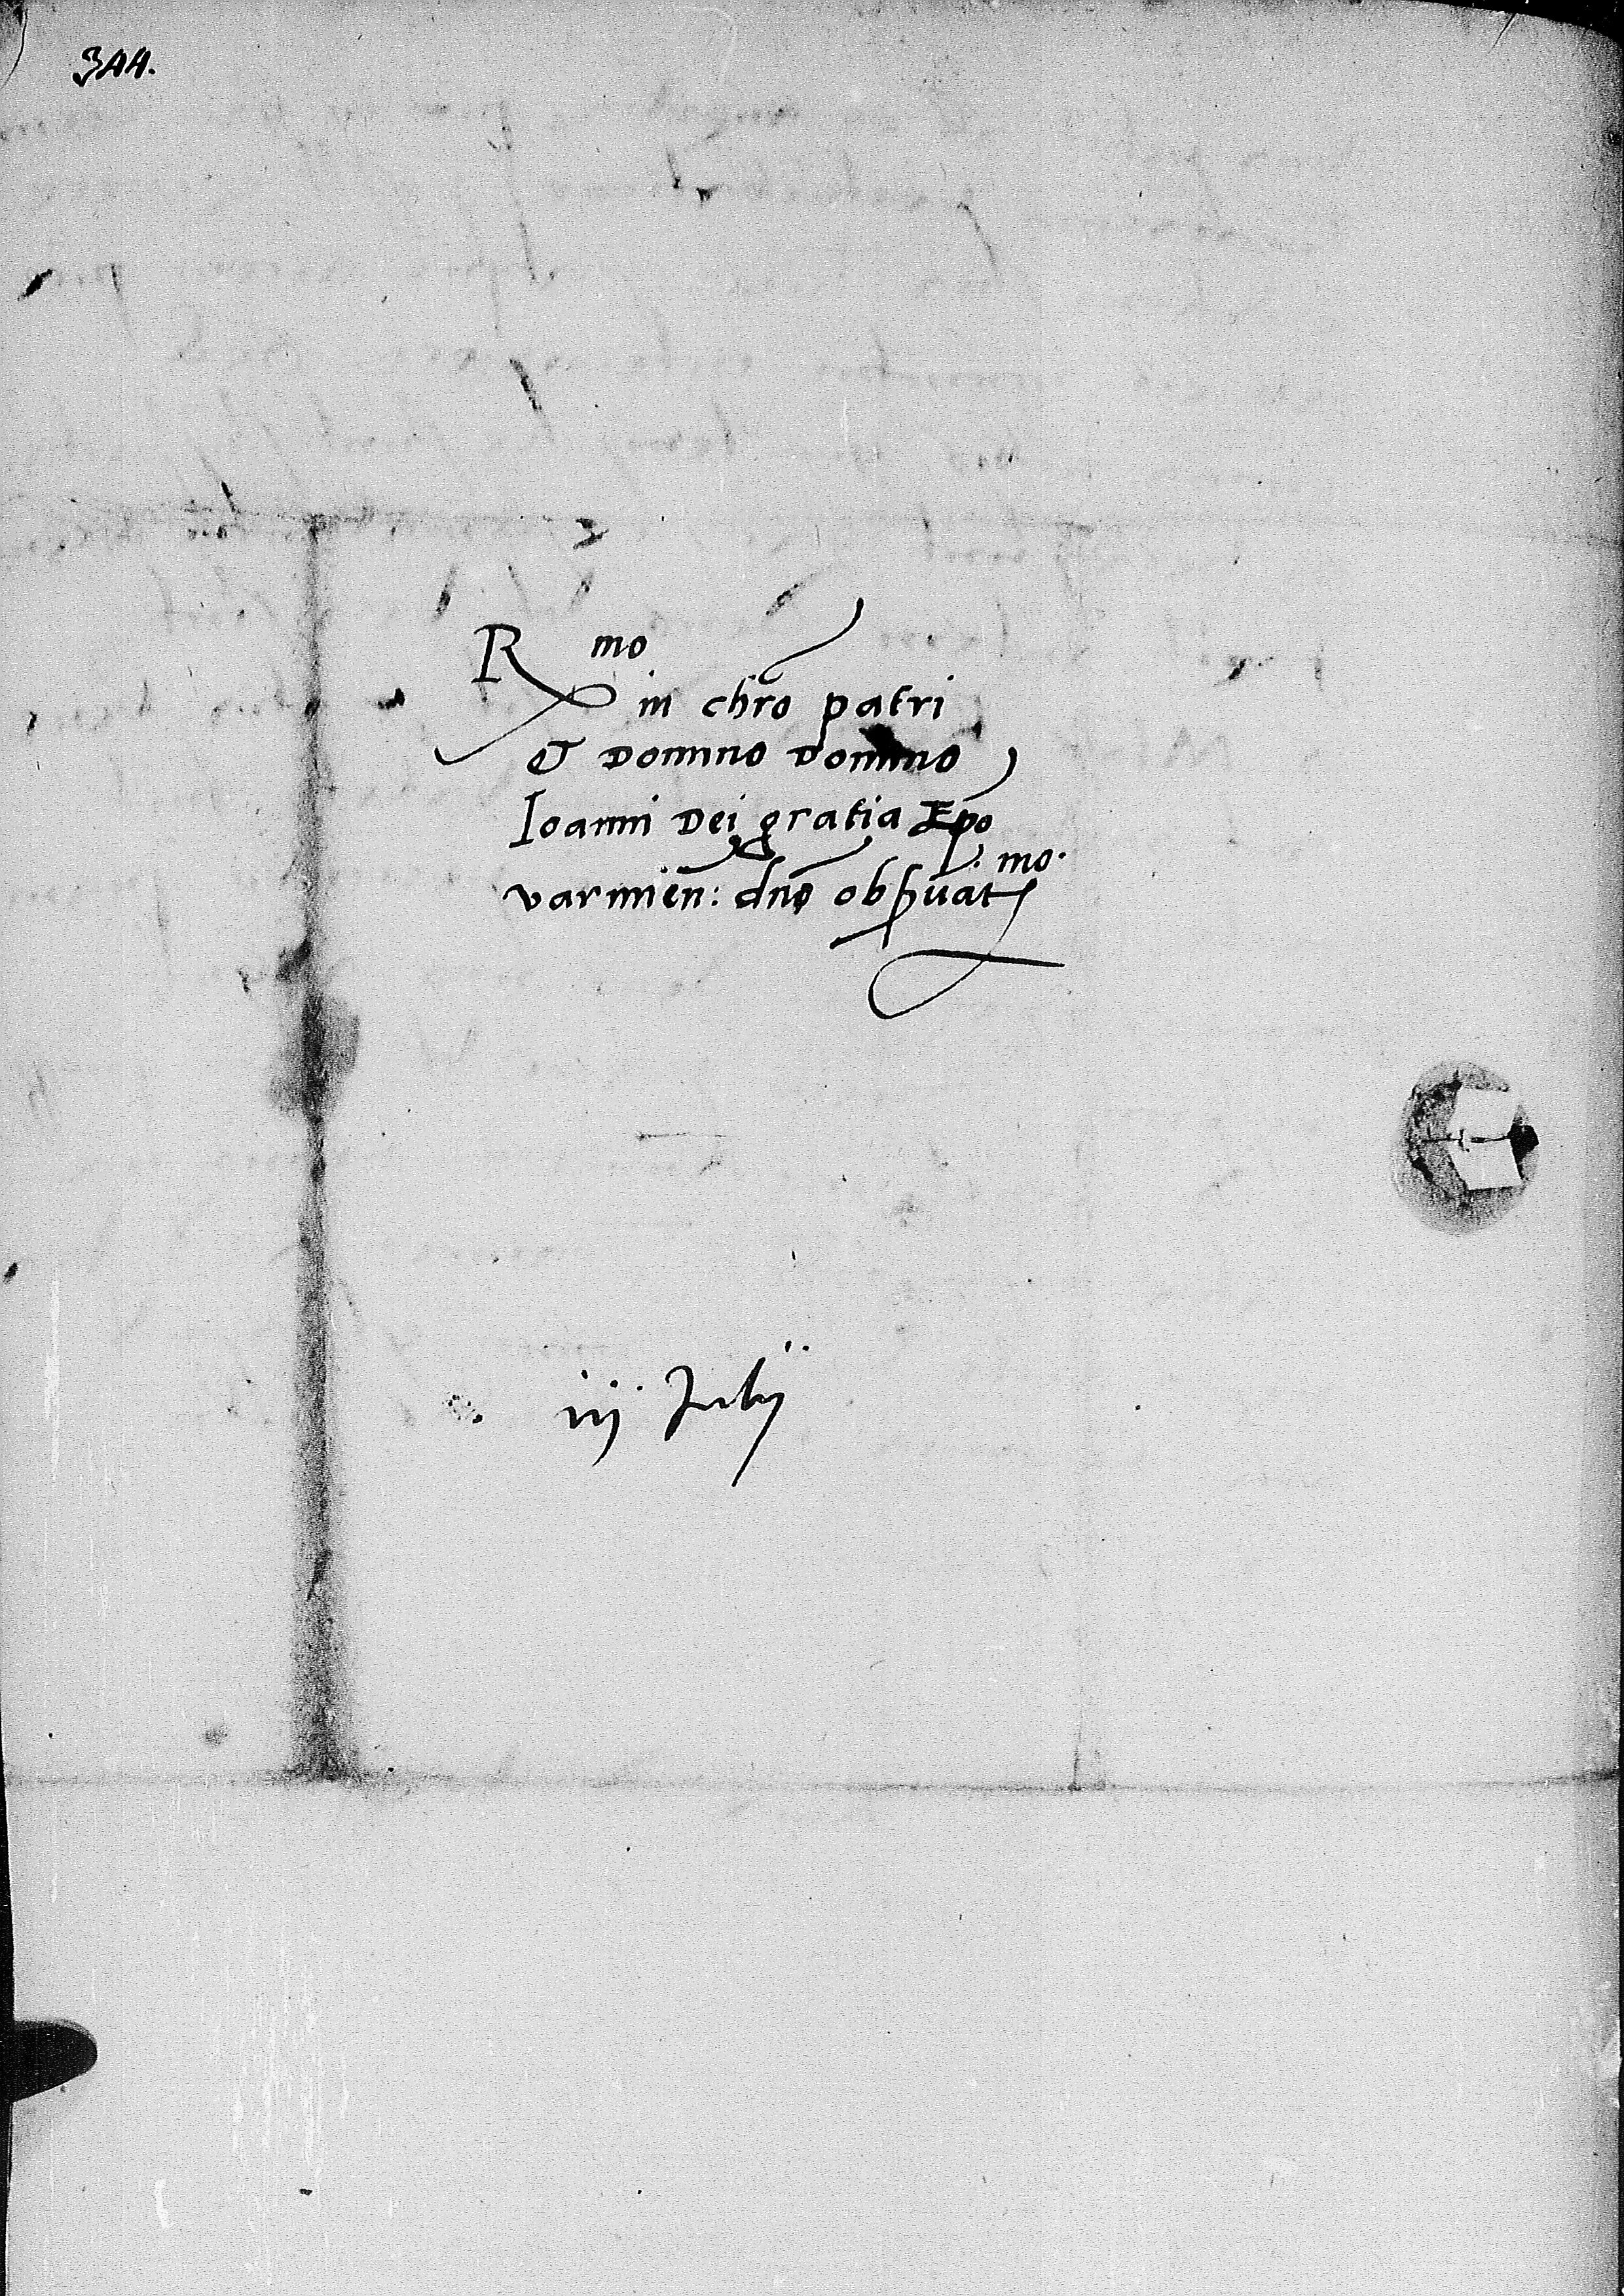 344.
Rmo
in chro patri
et Domino Domino
Ioanni Dei gratia Epo
varmien: dno obseruatmo.
iij Julij